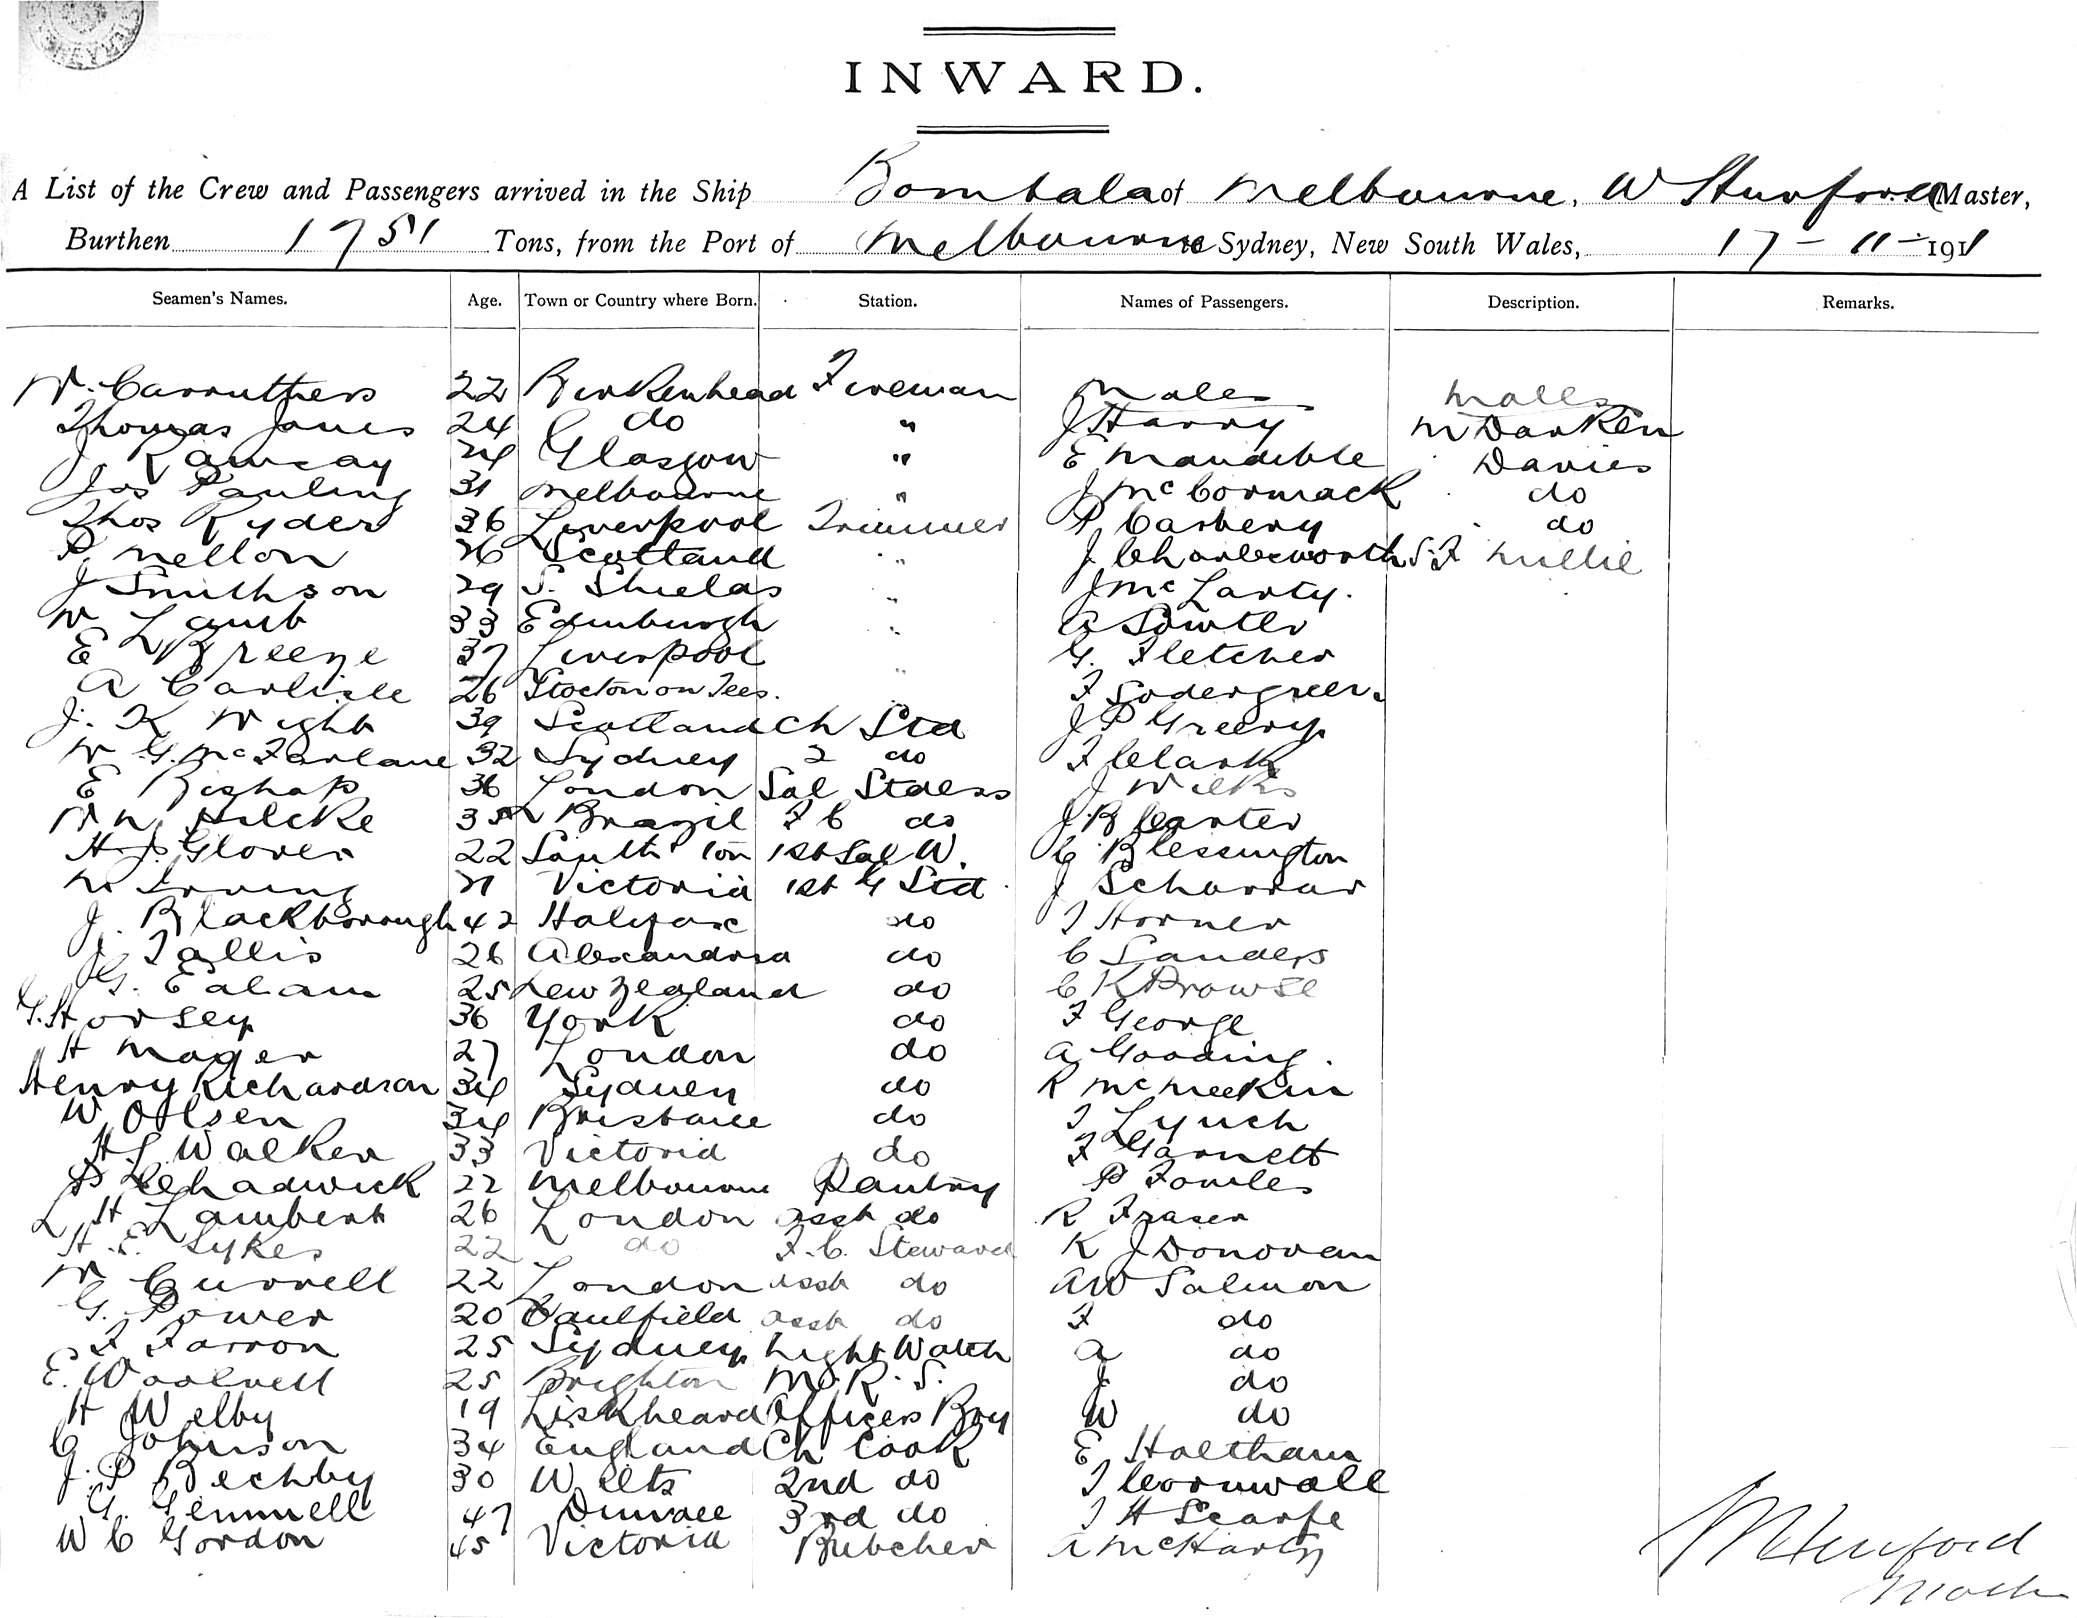 INWARD.
A List of the Crew and Passengers arrived in the Ship Bombala of Melbourne, W Master,
Burthen 1751 Tons, from the Port of Melbourne to Sydney, New South Wales, 17-11-1911
Seamen's Names. Age. Town or Country where Born. Station. Names of Passengers. Description. Remarks.
W. Carruthers 22 Birkenhead Fireman Males Males
Thomas Jones 24 do " J Harry M Darken
J Ramsay 24 Glasgow " E Mandible Davies
Jos Pauling 31 Melbourne " J McCormack do
Thos Ryder 36 Liverpool Trimmer P Carbery do
P Mellon 26 Scotland " J Charlesworth S.F Millie
J Smithson 29 S. Shields " J McLarty.
W Lamb 33 Edinburgh " A Sowter
E Breeze 37 Liverpool " G. Fletcher
A Carlisle 26 Stocton on Tees. " F Sodergreen
J. K Wight 39 Scotland Ch Std J P Greevy
W. G. McFarlane 32 Sydney 2 do F Clark
E Bishop 36 London Sal Stdess J Wilks
35 Brazil F C do J. B Carter
H. J. Glover 22 South'ton 1st Sal W. C. Blessington
Irving 21 Victoria 1st G Std J
J. Blackborrough 42 Halifax do T Horner
J Tallis 26 Alexandria do C Sanders
G. Ealam 25 New Zealand do C K Prowse
G. Horsey 36 York do F George
H Mager 27 London do A Gooding.
Henry Richardson 34 Sydney do R McMeekin
W Olsen 34 Brisbane do T Lynch
H S Walker 33 Victoria do F Garnett
Chadwick 22 Melbourne Pantry P Fowles
L H Lambert 26 London asst do R Fraser
H. E. Sykes 22 do F. C. Steward K J Donovan
W Currell 22 London asst do AW Salmon
G. Power 20 Caulfield asst do F do
F Farron 25 Sydney Night Watch A do
E. Woolnell 25 Brighton M. R. S. J do
H Welby 19 Liskheard Officers Boy W do
C Johnson 34 England Ch Cook E Holtham
J. P Bechby 30 Wilts 2nd do T Cornwall
G. Gemmell 47 3rd do T H Scarfe
W C Gordon 45 Victoria Butcher A McHarty